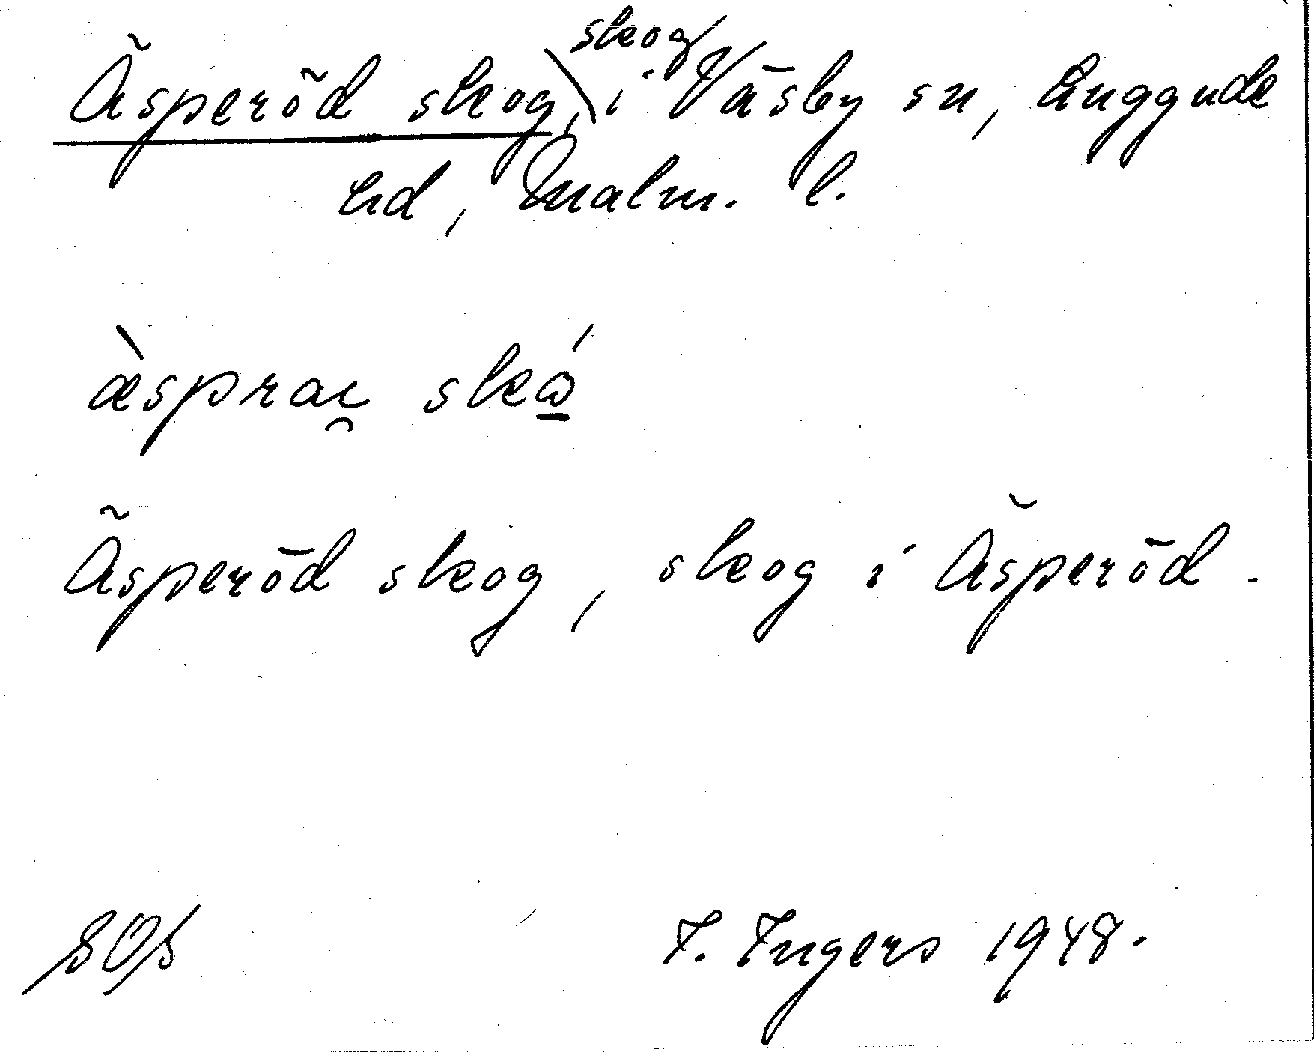 Äsperöd skog, skog i Väsby sn, Luggude
hd, Malm. l.
æ̀spraɩ̯ skɷ́
Äsperöd skog, skog i Äsperöd.
I. Ingers 1948.